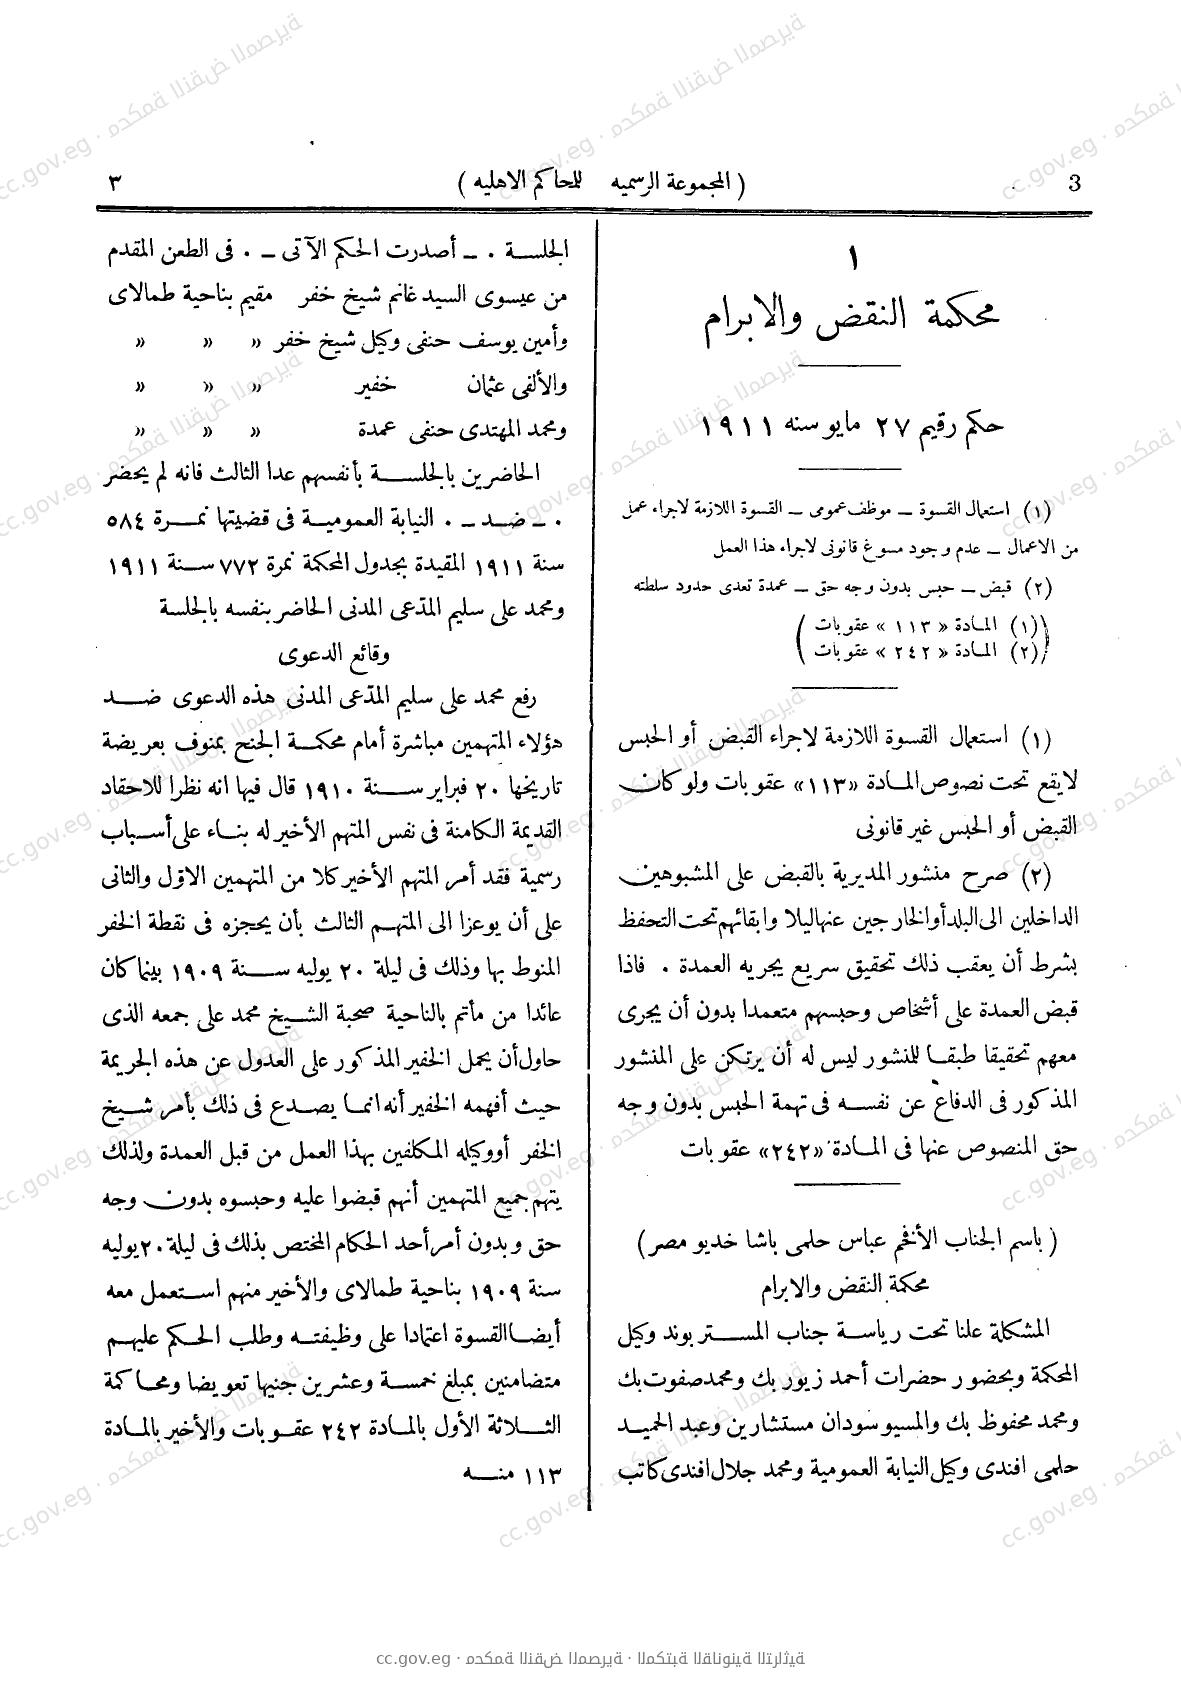 3 ( المجموعة الرسميه للمحاكم الاهليه ) ٣
١
محكمة النقض والابرام
حكم رقيم ٢٧ مايو سنه ١٩١١
(١) استعمال القسوة ــ موظف عمومى ــ القسوة اللازمة لاجراء عمل
من الاعمال ــ عدم وجود مسوغ قانونى لاجراء هذا العمل
(٢) قبض ــ حبس بدون وجه حق ــ عمدة تعدى حدود سلطته
(١) المادة « ١١٣ » عقوبات
(٢) المادة « ٢٤٢ » عقوبات
(١) استعمال القسوة اللازمة لاجراء القبض أو الحبس
لايقع تحت نصوص المادة «١١٣» عقوبات ولو كان
القبض أو الحبس غير قانونى
(٢) صرح منشور المديرية بالقبض على المشبوهين
الداخلين الى البلد أو الخارجين عنها ليلا وابقائهم تحت التحفظ
بشرط أن يعقب ذلك تحقيق سريع يجريه العمدة . فاذا
قبض العمدة على أشخاص وحبسهم متعمدا بدون أن يجرى
معهم تحقيقا طبقا للمنشور ليس له أن يرتكن على المنشور
المذكور فى الدفاع عن نفسه فى تهمة الحبس بدون وجه
حق المنصوص عنها فى المادة «٢٤٢» عقوبات
( باسم الجناب الأفخم عباس حلمى باشا خديو مصر )
محكمة النقض والابرام
المشكلة علنا تحت رياسة جناب المستر بوند وكيل
المحكمة وبحضور حضرات أحمد زيور بك ومحمد صفوت بك
ومحمد محفوظ بك والمسيو سودان مستشارين وعبد الحميد
حلمى افندى وكيل النيابة العمومية ومحمد جلال افندى كاتب
الجلسة . ــ أصدرت الحكم الآتى ــ . فى الطعن المقدم
من عيسوى السيد غانم شيخ خفر مقيم بناحية طمالاى
وأمين يوسف حنفى وكيل شيخ خفر « « «
والألفى عثمان خفير « « «
ومحمد المهتدى حنفى عمدة « « «
الحاضرين بالجلسة بأنفسهم عدا الثالث فانه لم يحضر
. ــ ضد ــ . النيابة العمومية فى قضيتها نمرة ٥٨٤
سنة ١٩١١ المقيدة بجدول المحكمة نمرة ٧٧٢ سنة ١٩١١
ومحمد على سليم المدّعى المدنى الحاضر بنفسه بالجلسة
وقائع الدعوى
رفع محمد على سليم المدّعى المدنى هذه الدعوى ضد
هؤلاء المتهمين مباشرة أمام محكمة الجنح بمنوف بعريضة
تاريخها ٢٠ فبراير سنة ١٩١٠ قال فيها انه نظرا للاحقاد
القديمة الكامنة فى نفس المتهم الأخير له بناء على أسباب
رسمية فقد أمر المتهم الأخير كلا من المتهمين الاوّل والثانى
على أن يوعزا الى المتهم الثالث بأن يحجزه فى نقطة الخفر
المنوط بها وذلك فى ليلة ٢٠ يوليه سنة ١٩٠٩ بينما كان
عائدا من مأتم بالناحية صحبة الشيخ محمد على جمعه الذى
حاول أن يحمل الخفير المذكور على العدول عن هذه الجريمة
حيث أفهمه الخفير أنه انما يصدع فى ذلك بأمر شيخ
الخفر أو وكيله المكلفين بهذا العمل من قبل العمدة ولذلك
يتهم جميع المتهمين أنهم قبضوا عليه وحبسوه بدون وجه
حق وبدون أمر أحد الحكام المختص بذلك فى ليلة ٢٠ يوليه
سنة ١٩٠٩ بناحية طمالاى والأخير منهم استعمل معه
أيضا القسوة اعتمادا على وظيفته وطلب الحكم عليهم
متضامنين بمبلغ خمسة وعشرين جنيها تعويضا ومحاكمة
الثلاثة الأول بالمادة ٢٤٢ عقوبات والأخير بالمادة
١١٣ منه
cc.gov.eg · محكمة النقض المصرية · المكتبة القانونية التراثية